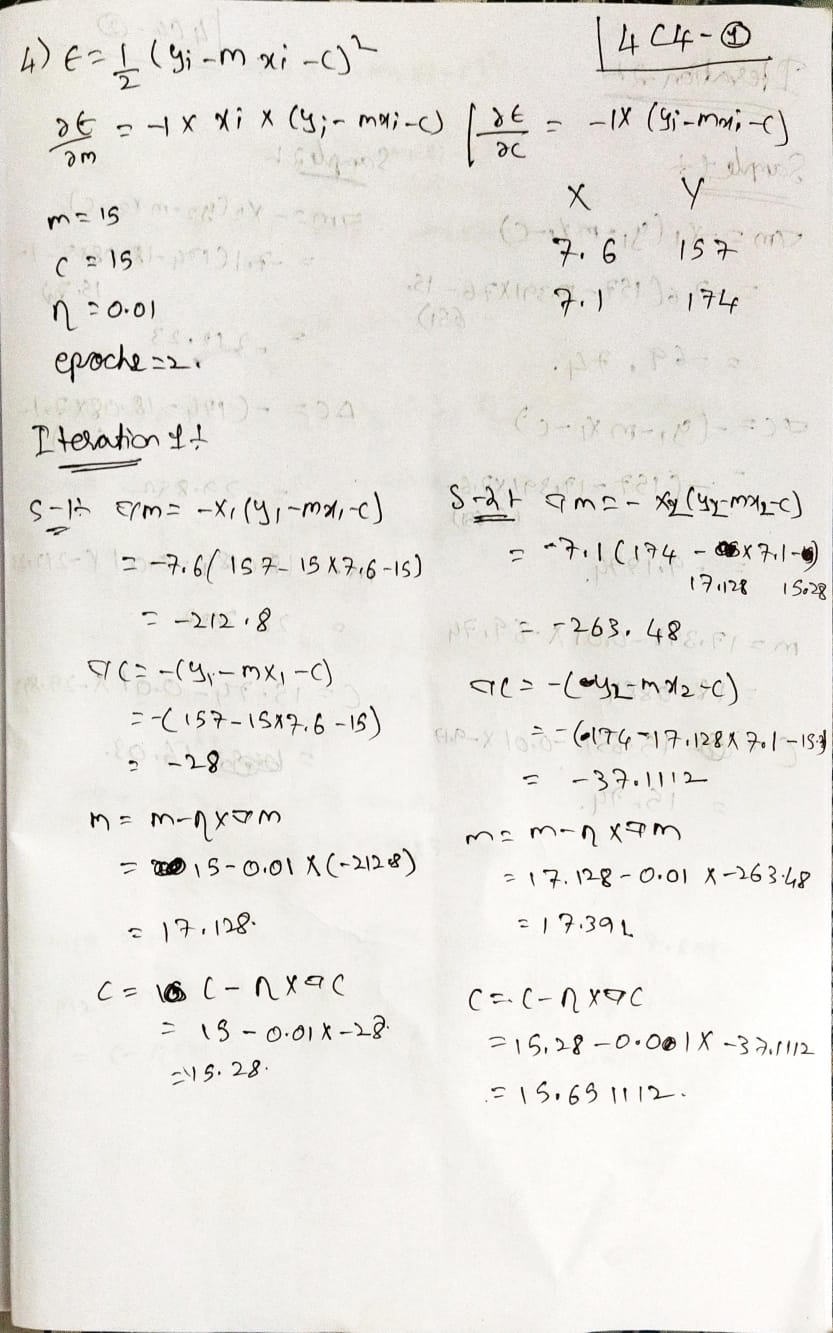 4C4-①
4) E = 1/2 (yi - m xi - c)²
∂E/∂m = -1 x xi x (yi - mxi - c) | ∂E/∂c = -1x (yi - mxi - c)
X Y
7.6 157
7.1 174
m = 15
c = 15
η = 0.01
epoche = 2.
Iteration 1:
S-1:
∇m = -x₁ (y₁ - mx₁ - c)
= -7.6( 157 - 15 x 7.6 - 15)
= -212.8
∇c = -(y₁ - mx₁ - c)
= -(157 - 15x7.6 - 15)
= -28
m = m - η x ∇m
= 15 - 0.01 x (-212.8)
= 17.128.
c = c - η x ∇c
= 15 - 0.01 x -28.
= 15.28.
S-2:
∇m = - x₂ (y₂ - mx₂ - c)
= -7.1 (174 - x 7.1 - )
17.128 15.28
= -263.48
∇c = -(y₂ - mx₂ - c)
= -(174 - 17.128 x 7.1 - 15.
= -37.1112
m = m - η x ∇m
= 17.128 - 0.01 x -263.48
= 17.391
c = c - η x ∇c
= 15.28 - 0.001 x -37.1112
= 15.651112.